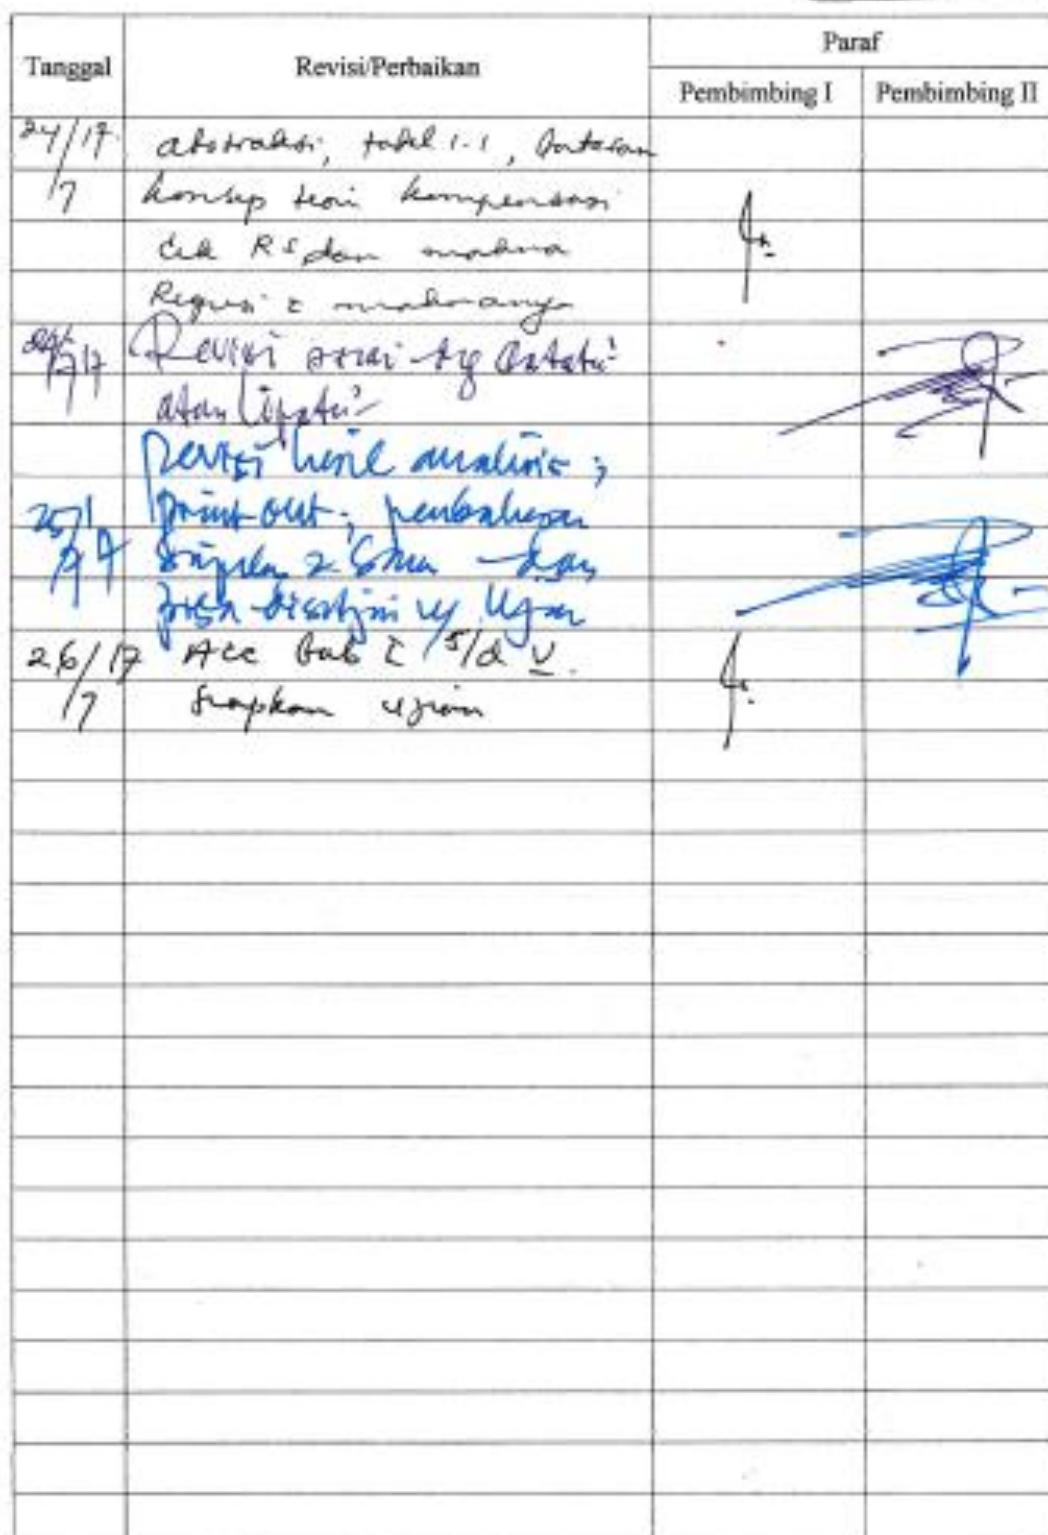 Tanggal Revisi/Perbaikan Paraf
Pembimbing I Pembimbing II
24/17 abstraksi, tabel 1.1, batasan
/7 konsep teori kompensasi
Cek RS dan makna
Regresi & maknanya
Revisi sesuai
atau
Revisi hasil analisis;
25/7 17 print-out; pembahasan
dan
bisa disetujui Ujian
26/17 Acc Bab I s/d V.
/7 Siapkan ujian